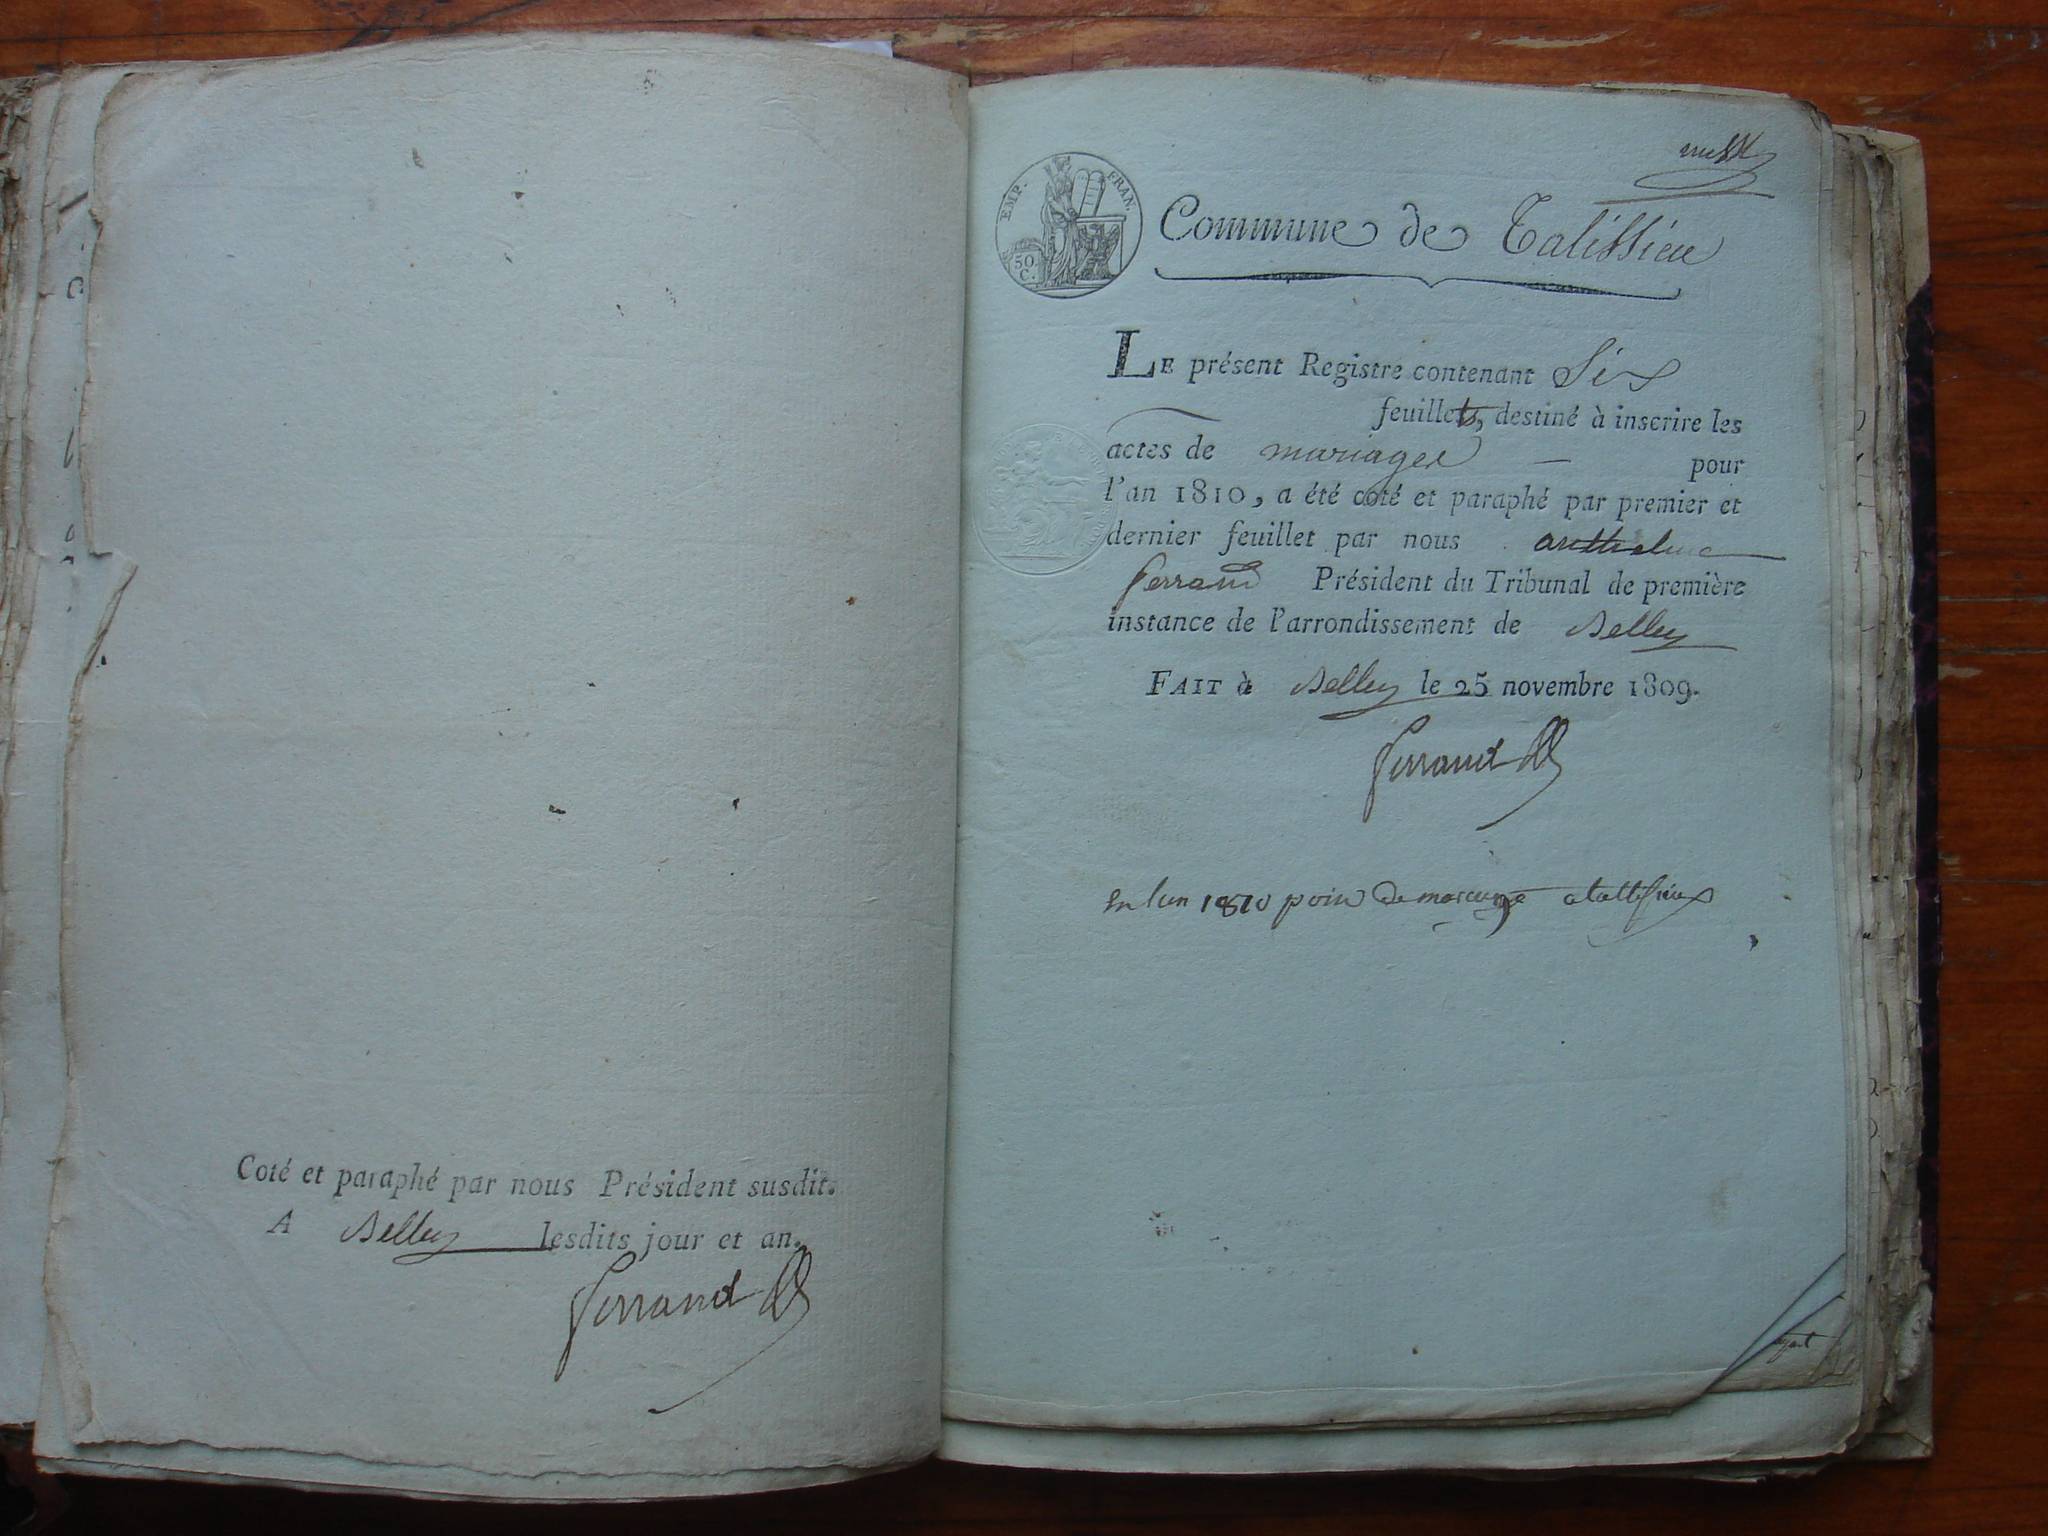 Coté et paraphé par nous Président susdit.
A Belley lesdits jour et an.
Ferrand
EMP. FRAN.
50.
C.
Commune de Talissieu
LE présent Registre contenant Six
feuillets, destiné à inscrire les
actes de mariages — pour
l'an 1810, a été coté et paraphé par premier et
dernier feuillet par nous anthelme
ferrand Président du Tribunal de première
instance de l'arrondissement de Belley
FAIT à Belley le 25 novembre 1809.
Ferrand
en lan 1810 poin de mariage a tallisieux